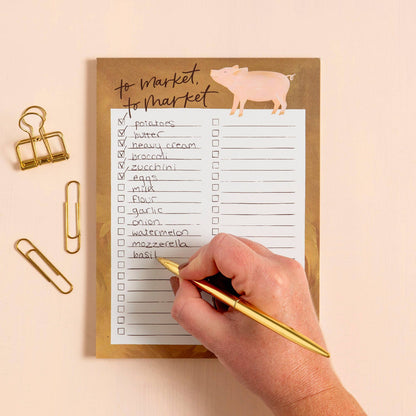 to market,
to market
potatoes
butter
heavy cream
broccoli
zucchini
eggs
milk
flour
garlic
onion
watermelon
mozzarella
basil